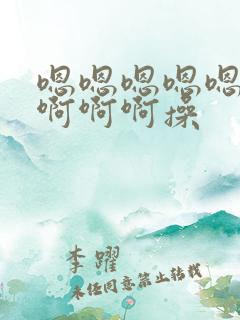 嗯嗯嗯嗯嗯
啊啊啊操
李躍
未经同意禁止转载